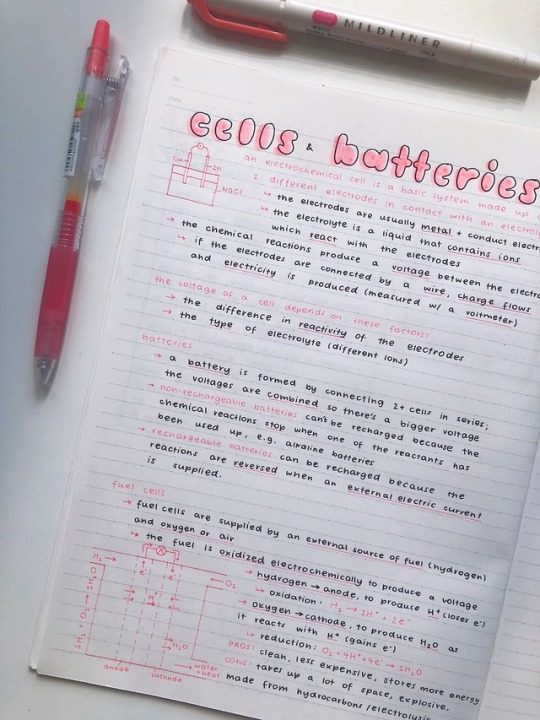 MILDLINER
cells & batteries
an electrochemical cell is a basic system made up
2 different electrodes in contact with an
Cu
Zn
NaCl
↳ the electrodes are usually metal + conduct
↳ the electrolyte is a liquid that contains ions
which react with the electrodes
→ the chemical reactions produce a voltage between the
↳ if the electrodes are connected by a wire, charge flows
and electricity is produced (measured w/ a voltmeter)
the voltage of a cell depends on these factors:
→ the difference in reactivity of the electrodes
→ the type of electrolyte (different ions)
batteries
→ a battery is formed by connecting 2+ cells in series;
the voltages are combined so there's a bigger voltage
→ non-rechargeable batteries can't be recharged because the
chemical reactions stop when one of the reactants has
been used up, e.g. alkaline batteries
→ rechargeable batteries can be recharged because the
reactions are reversed when an external electric current
is supplied.
fuel cells
→ fuel cells are supplied by an external source of fuel (hydrogen)
and oxygen or air
↳ the fuel is oxidized electrochemically to produce a voltage
→ hydrogen → anode, to produce H⁺ (loses e⁻)
↳ oxidation: H₂ → 2H⁺ + 2e⁻
→ oxygen → cathode, to produce H₂O as
it reacts with H⁺ (gains e⁻)
↳ reduction: O₂ + 4H⁺ + 4e⁻ → 2H₂O
PROS: clean, less expensive, stores more energy
CONS: takes up a lot of space, explosive,
made from hydrocarbons/electrolysis
2H₂ + O₂ → 2H₂O
H₂
e⁻
e⁻
O₂
H⁺
H₂O
anode
cathode
water
+heat